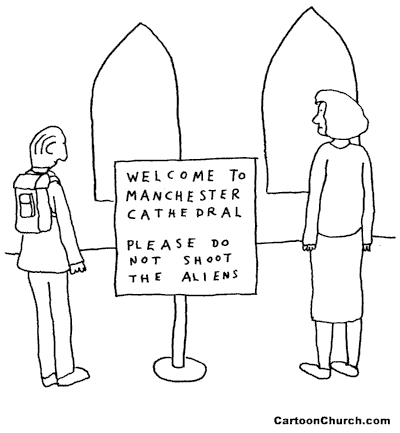 WELCOME TO
MANCHESTER
CATHEDRAL
PLEASE DO
NOT SHOOT
THE ALIENS
CartoonChurch.com